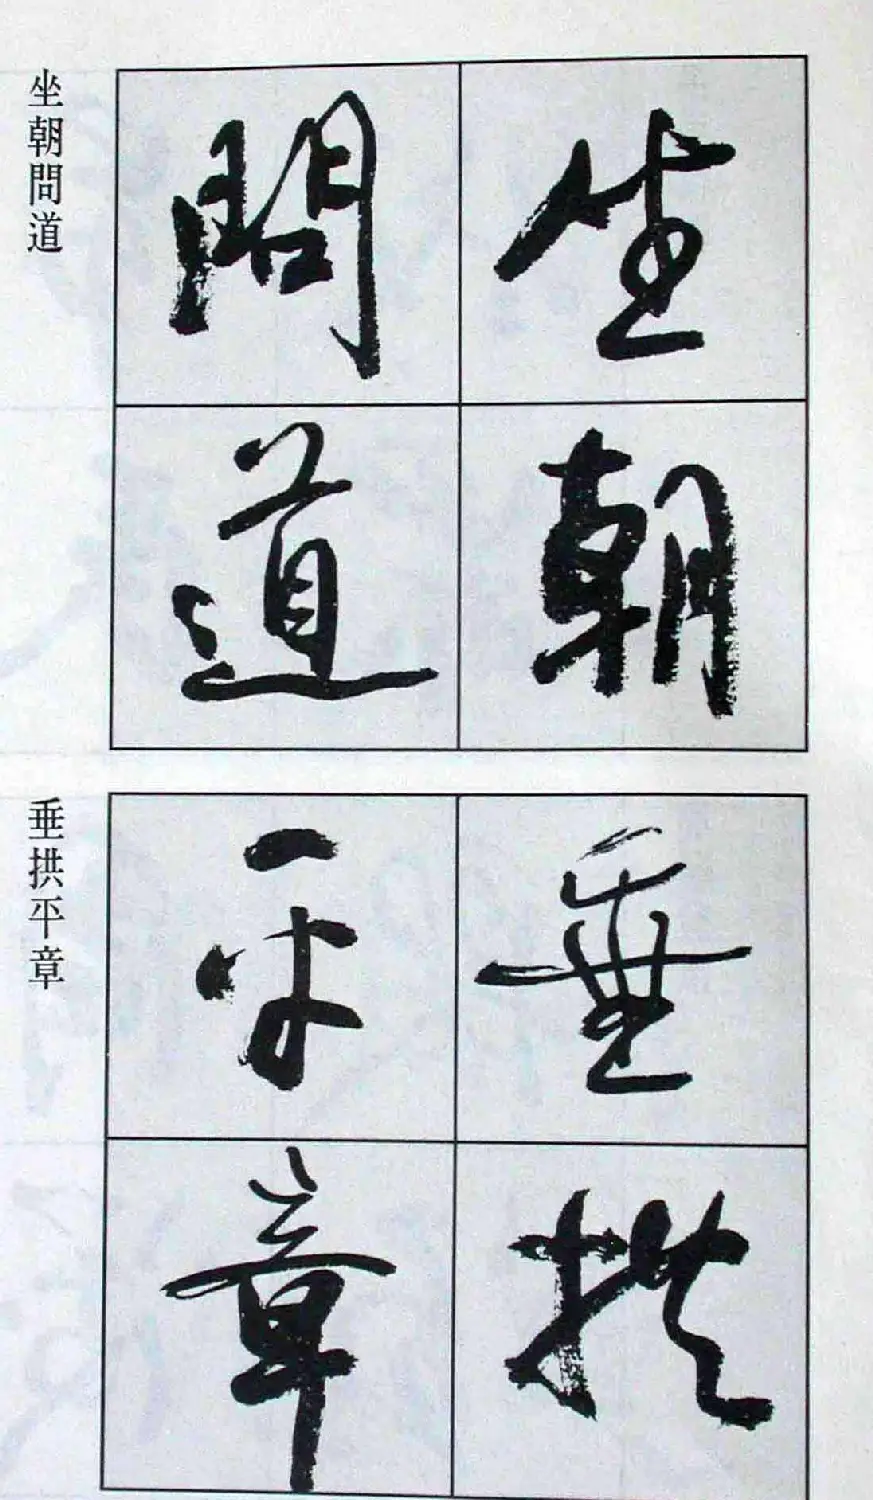 坐朝
問道
坐朝問道
垂拱
平章
垂拱平章